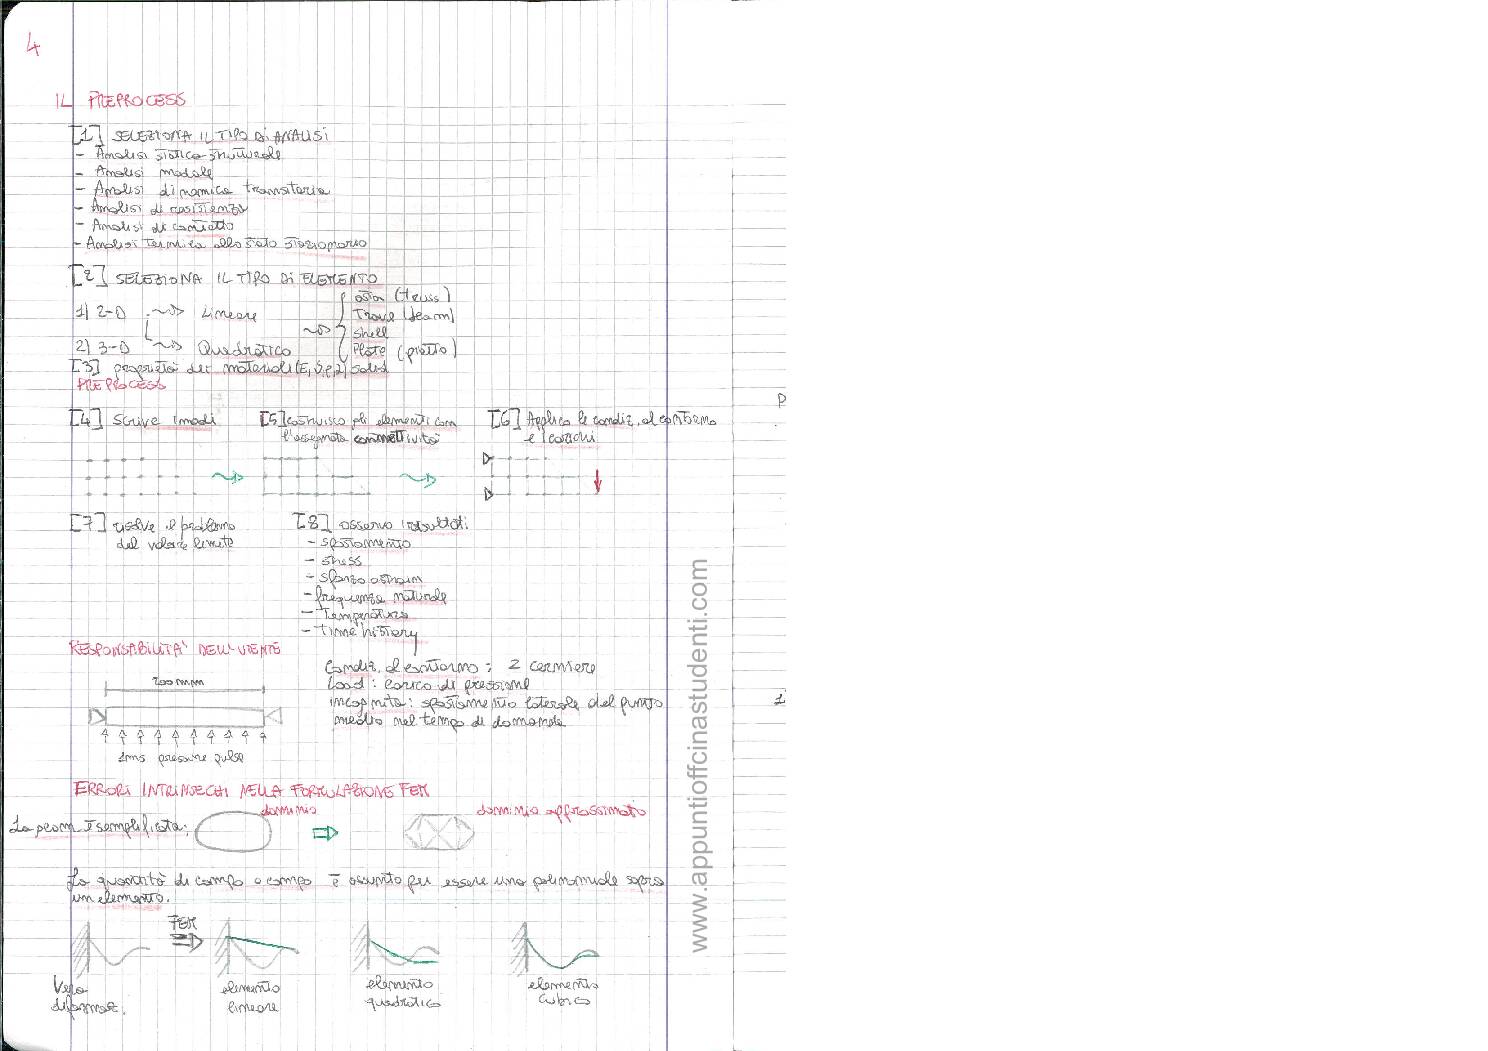 4
IL PREPROCESS
[1] SELEZIONA IL TIPO DI ANALISI
- Analisi statico-strutturale
- Analisi modale
- Analisi dinamica transitoria
- Analisi di resistenza
- Analisi di contatto
- Analisi termica allo stato stazionario
[2] SELEZIONA IL TIPO DI ELEMENTO
asta (truss)
1) 2-D Lineare Trave (beam)
shell
2) 3-D Quadratico Plate (piatto)
[3] proprietà dei materiali solid
PREPROCESS
[4] Scrive i nodi [5] costruisco gli elementi con [6] Applico le condiz. al contorno
l'assegnata connettività e i carichi
[7] risolve il problema [8] osservo i risultati:
del valore limite - spostamento
- stress
- sforzo o strain
- frequenza naturale
- Temperatura
- Time history
RESPONSABILITA' DELL'UTENTE
Condiz. al contorno: 2 cerniere
200 mm
Load: carico di pressione
incognita: spostamento laterale del punto
medio nel tempo di domanda
1ms pressure pulse
ERRORI INTRINSECHI NELLA FORMULAZIONE FEM
dominio dominio approssimato
La geom. è semplificata:
La quantità di campo o campo è assunto per essere una polinomiale sopra
un elemento.
FEM
Vera elemento elemento elemento
deformaz. lineare quadratico cubico
www.appuntioffcinastudenti.com
P
1